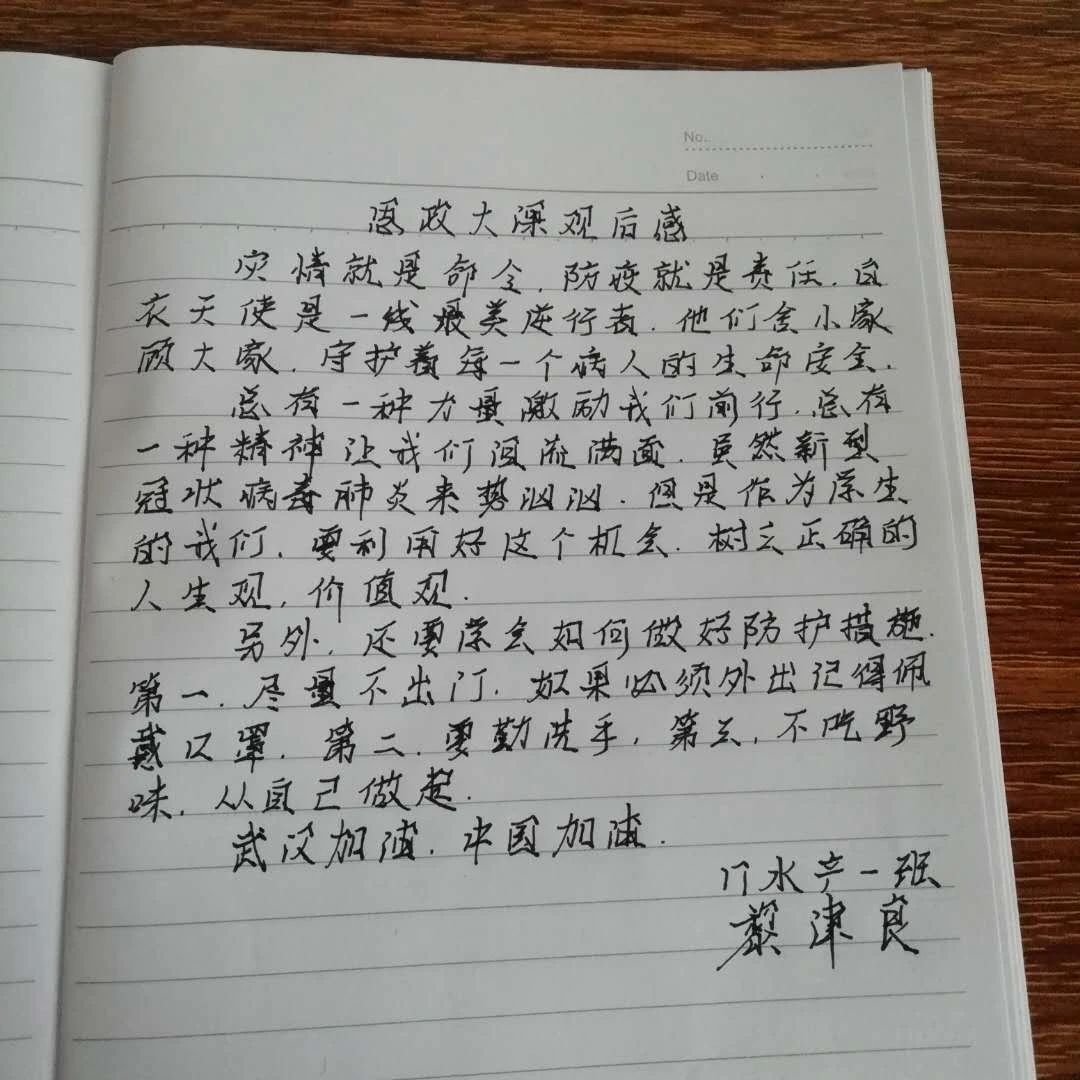 No.
Date
思政大课观后感
灾情就是命令,防疫就是责任,白
衣天使是一线最美逆行者.他们舍小家
顾大家,守护着每一个病人的生命安全.
总有一种力量激励我们前行.总有
一种精神让我们泪流满面.虽然新型
冠状病毒肺炎来势汹汹.但是作为学生
的我们,要利用好这个机会.树立正确的
人生观,价值观.
另外,还要学会如何做好防护措施.
第一.尽量不出门.如果必须外出记得佩
戴口罩.第二.要勤洗手,第三,不吃野
味,从自己做起.
武汉加油.中国加油.
17水产一班
黎津良